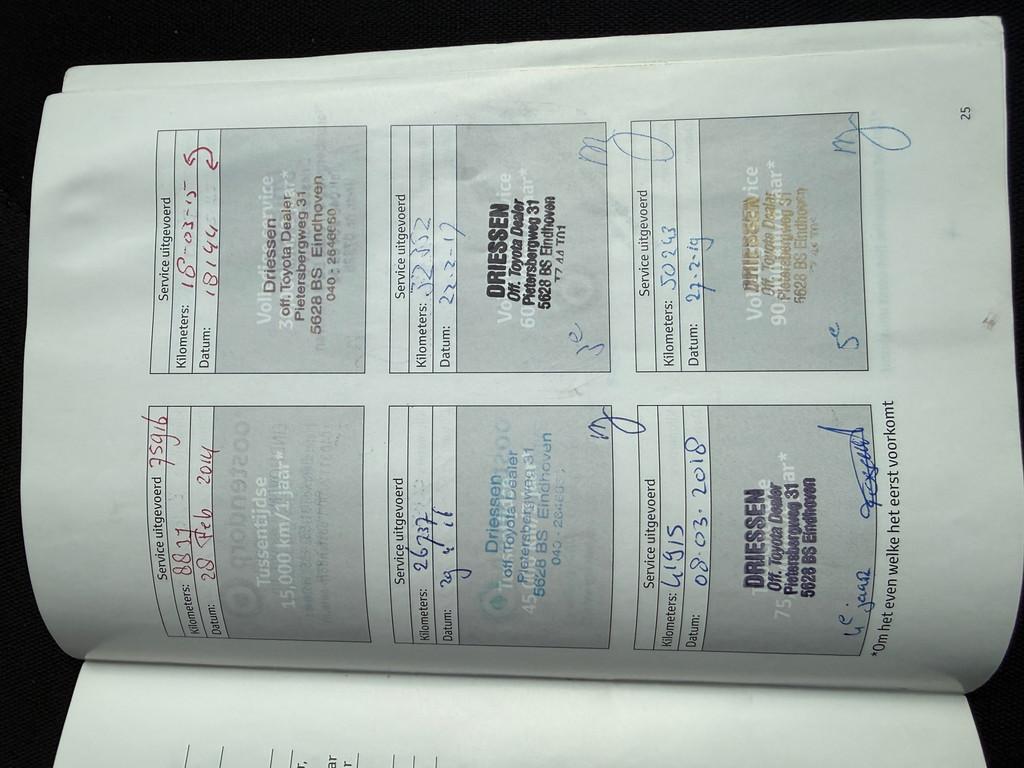 Service uitgevoerd 75916
Kilometers: 8837
Datum: 28 Feb 2014
Tussentijdse
15.000 km/1 jaar*
Service uitgevoerd
Kilometers: 18-03-15
Datum: 18144
Driessen
off. Toyota Dealer
Pietersbergweg 31
5628 BS Eindhoven
040 - 2646650
Service uitgevoerd
Kilometers: 26737
Datum:
Driessen
off. Toyota Dealer
Pietersbergweg 31
5628 BS Eindhoven
Service uitgevoerd
Kilometers: 32352
Datum: 22-2-17
DRIESSEN
Off. Toyota Dealer
Pietersbergweg 31
5628 BS Eindhoven
3e
Service uitgevoerd
Kilometers: 41915
Datum: 08-03-2018
DRIESSEN
Off. Toyota Dealer
Pietersbergweg 31
5628 BS Eindhoven
4e jaar
Service uitgevoerd
Kilometers: 50243
Datum: 27-2-19
DRIESSEN
Off. Toyota Dealer
Pietersbergweg 31
5628 BS Eindhoven
5e
*Om het even welke het eerst voorkomt
25